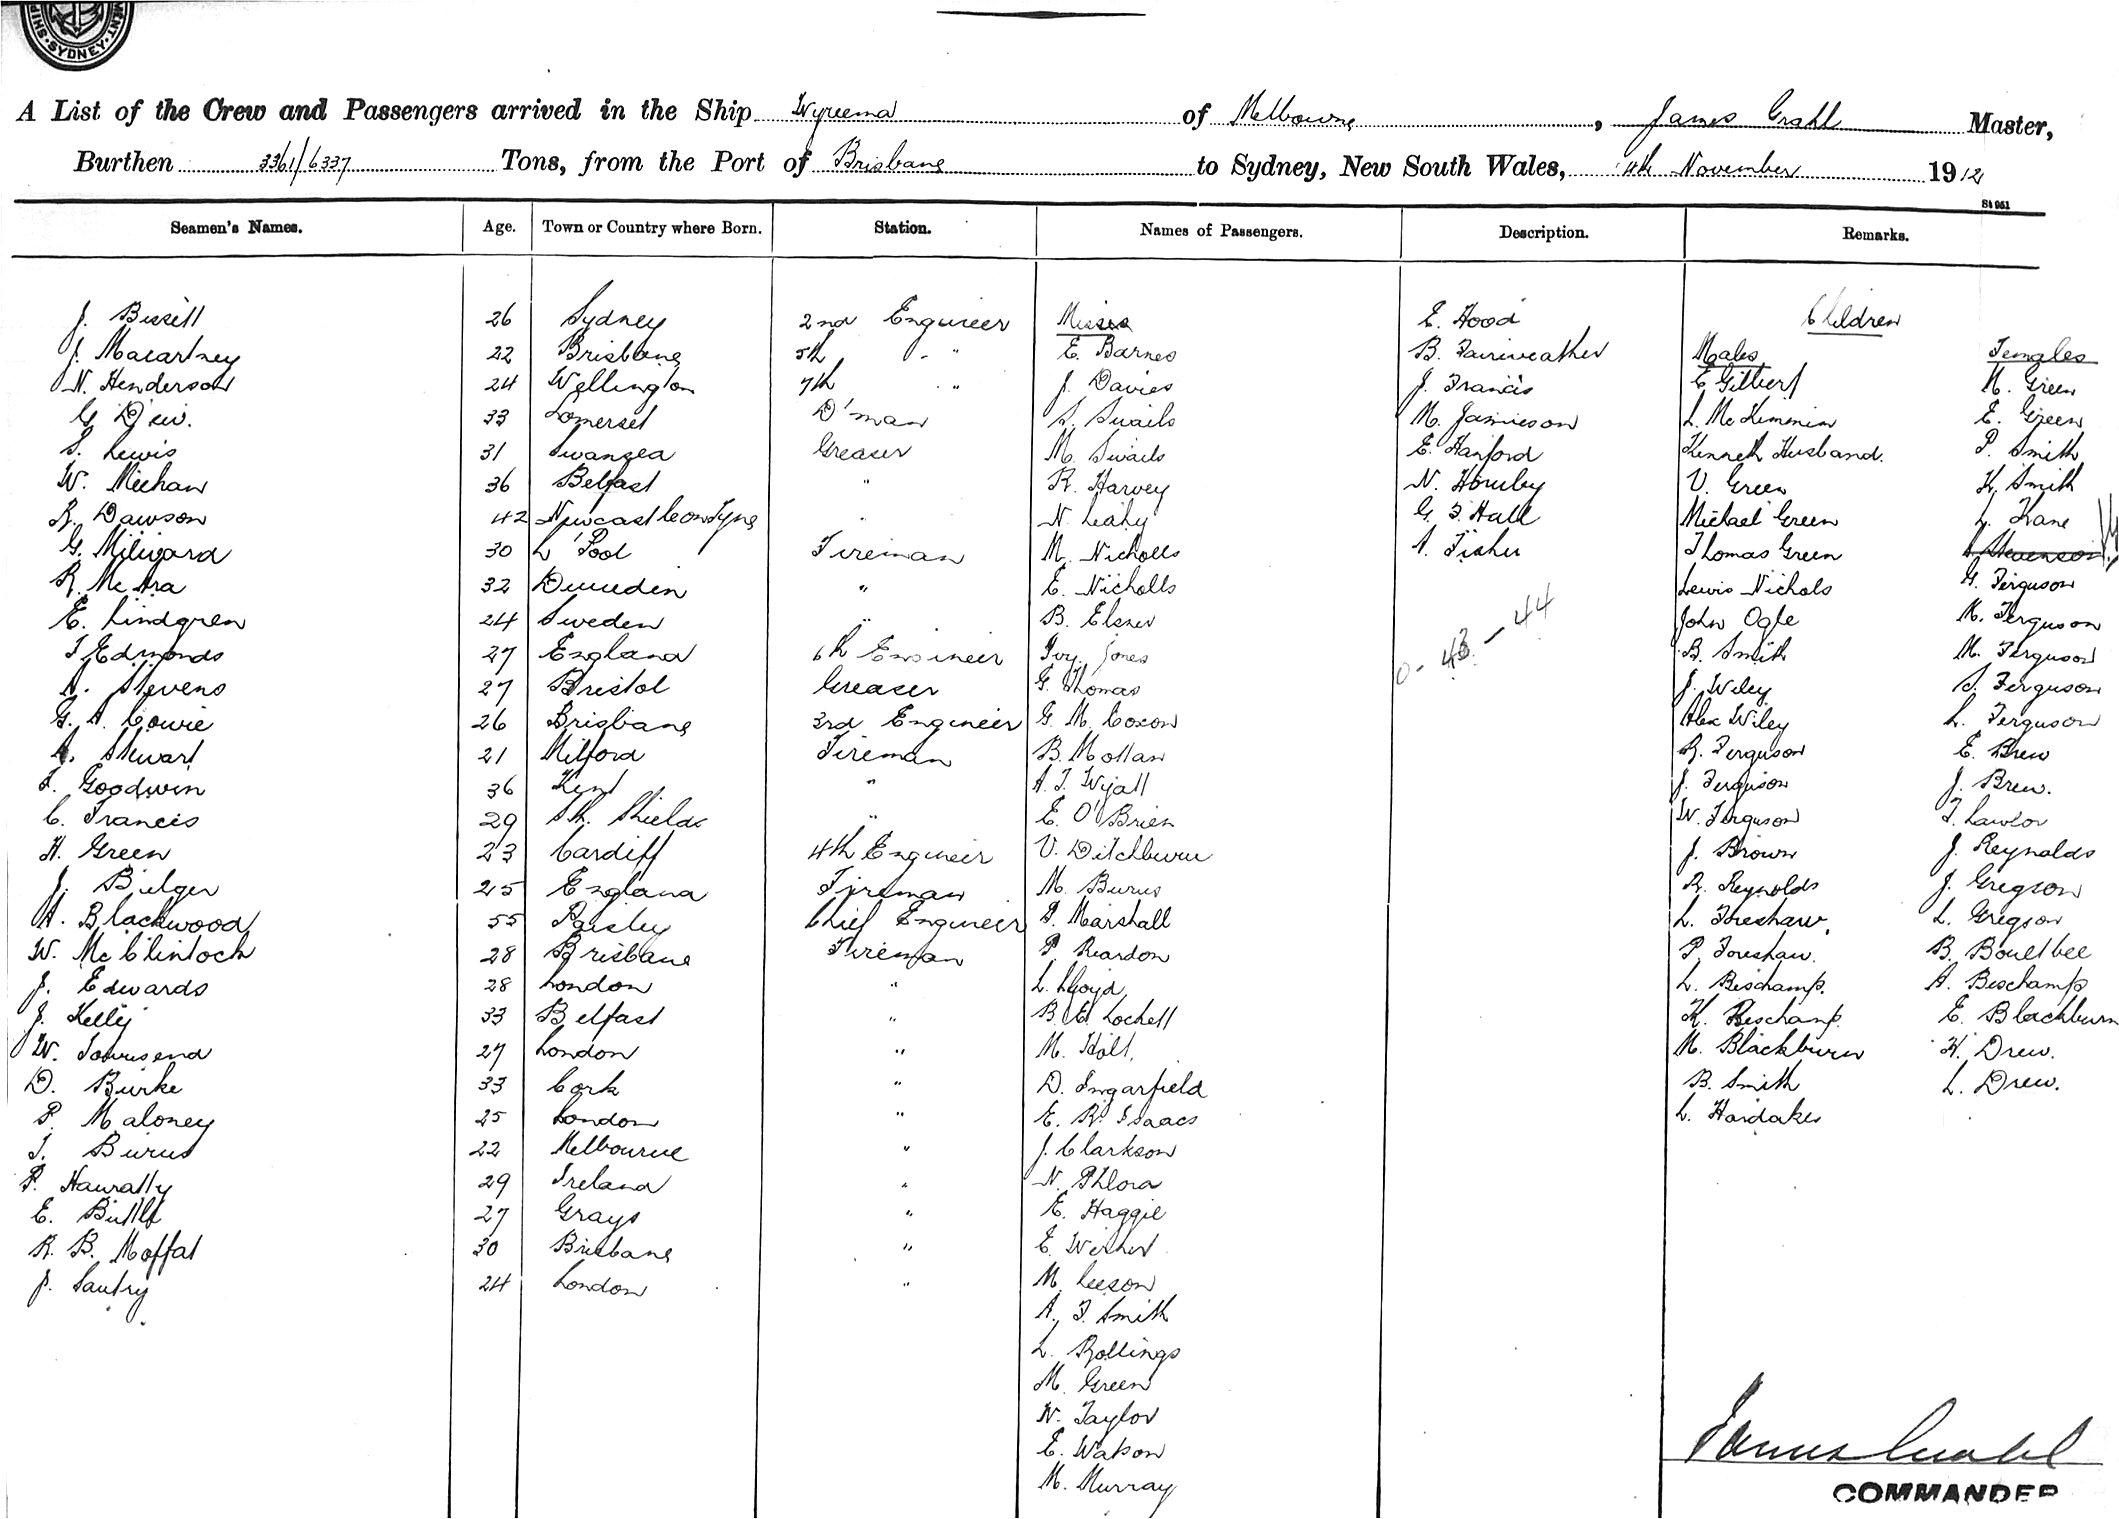 SYDNEY
A List of the Crew and Passengers arrived in the Ship Wyreema of Melbourne, James Grahl Master,
Burthen 3361/6337 Tons, from the Port of Brisbane to Sydney, New South Wales, 4th November 1912
St 951
Seamen's Names. Age. Town or Country where Born. Station. Names of Passengers. Description. Remarks.
J. Bissill 26 Sydney 2nd Engineer Misses E. Hood Children
J. Macartney 22 Brisbane 5th " " E. Barnes B. Fairweather Males Females
N. Henderson 24 Wellington 7th " " J. Davies J. Francis E Gilbert M. Green
G Dew. 33 Somerset D'man S. Swails M. Jamieson L. McKimmin E. Green
S. Lewis 31 Swansea Greaser M. Swails E. Hanford Kenneth Husband. P. Smith
W. Meehan 36 Belfast " R. Harvey N. Hornby V. Green K. Smith
R. Dawson 42 Newcastle on Tyne " N. Leahy G. F. Hall Michael Green L. Kane
G. Milward 30 L'Pool Fireman M. Nicholls A. Fisher Thomas Green Stevenson
R. McAra 32 Dunedin " E. Nicholls Lewis Nichols G. Ferguson
E. Lindgren 24 Sweden " B. Elsner 0 - 43 - 44 John Ogle M. Ferguson
T Edmonds 27 England 6th Engineer Ivy Jones B. Smith M. Ferguson
A. Stevens 27 Bristol Greaser G. Thomas J. Wiley S. Ferguson
G. A. Cowie 26 Brisbane 3rd Engineer G. M. Coxon Alex Wiley L. Ferguson
A. Stewart 21 Milford Fireman B. Mollan R. Ferguson E. Brew
F. Goodwin 36 Kent " A. T. Wyatt J. Ferguson J. Brew.
C. Francis 29 Sth. Shields " E. O'Brien W. Ferguson T. Lawlor
H. Green 23 Cardiff 4th Engineer V. Ditchburn J. Brown J. Reynolds
J. Bulger 25 England Fireman M. Burns R. Reynolds J. Gregson
A. Blackwood 55 Paisley Chief Engineer P. Marshall L. Foreshaw. L. Gregson
W. McClintock 28 Brisbane Fireman P. Reardon P. Foreshaw. B. Boultbee
J. Edwards 28 London " L. Lloyd L. Beschamp. A. Beschamp
J. Kelly 33 Belfast " B. E. Lockett K. Beschamp. E. Blackburn
W. Townsend 27 London " M. Holt. M. Blackburn H. Drew.
D. Burke 33 Cork " D. Ingarfield B. Smith L. Drew.
P. Maloney 25 London " E. R. Isaacs L. Hardaker
T. Burns 22 Melbourne " J. Clarkson
P. Hanratty 29 Ireland " N. Phlora
E. Butler 27 Grays " E. Haggie
R. B. Moffat 30 Brisbane " E. Weiner
J. Santry 24 London " M. Leeson
A. F. Smith
L. Rollings
M. Green
N. Taylor
E. Watson
M. Murray
James Grahl
COMMANDER